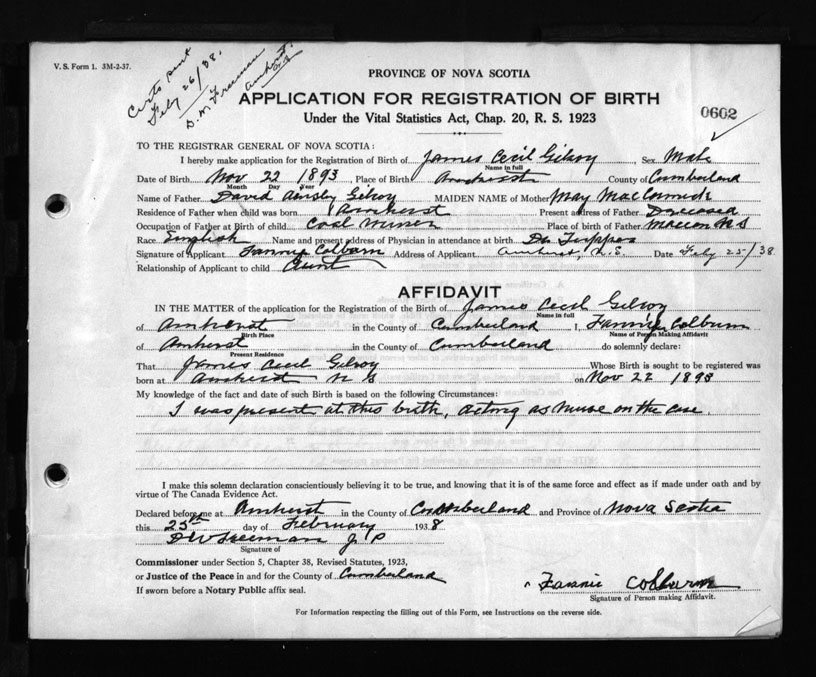 V. S. Form 1. 3M-2-37.
Certs sent
Feby 26/38.
D. W. Freeman
Amherst.
PROVINCE OF NOVA SCOTIA
APPLICATION FOR REGISTRATION OF BIRTH
0602
Under the Vital Statistics Act, Chap. 20, R. S. 1923
TO THE REGISTRAR GENERAL OF NOVA SCOTIA:
I hereby make application for the Registration of Birth of James Cecil Gilroy Sex Male
Name in full
Date of Birth Nov 22 1893, Place of Birth Amherst County of Cumberland
Month Day Year
Name of Father David Ainsley Gilroy MAIDEN NAME of Mother May MacCormick
Residence of Father when child was born Amherst Present address of Father Deceased
Occupation of Father at Birth of child Coal Miner Place of birth of Father Maccan N S
Race English Name and present address of Physician in attendance at birth Dr Tupper
Signature of Applicant Fannie Colburn Address of Applicant Amherst, N.S. Date Feby 25/38
Relationship of Applicant to child Aunt
AFFIDAVIT
IN THE MATTER of the application for the Registration of the Birth of James Cecil Gilroy
Name in full
of Amherst in the County of Cumberland I, Fannie Colburn
Birth Place Name of Person Making Affidavit
of Amherst in the County of Cumberland do solemnly declare:
Present Residence
That James Cecil Gilroy Whose Birth is sought to be registered was
born at Amherst N S on Nov 22 1893
My knowledge of the fact and date of such Birth is based on the following Circumstances:
I was present at this birth, acting as nurse on the case
I make this solemn declaration conscientiously believing it to be true, and knowing that it is of the same force and effect as if made under oath and by
virtue of The Canada Evidence Act.
Declared before me at Amherst in the County of Cumberland and Province of Nova Scotia
this 25th day of February 1938
D W Freeman J P
Signature of
Commissioner under Section 5, Chapter 38, Revised Statutes, 1923,
or Justice of the Peace in and for the County of Cumberland
If sworn before a Notary Public affix seal.
Fannie Colburn
Signature of Person making Affidavit.
For Information respecting the filling out of this Form, see Instructions on the reverse side.